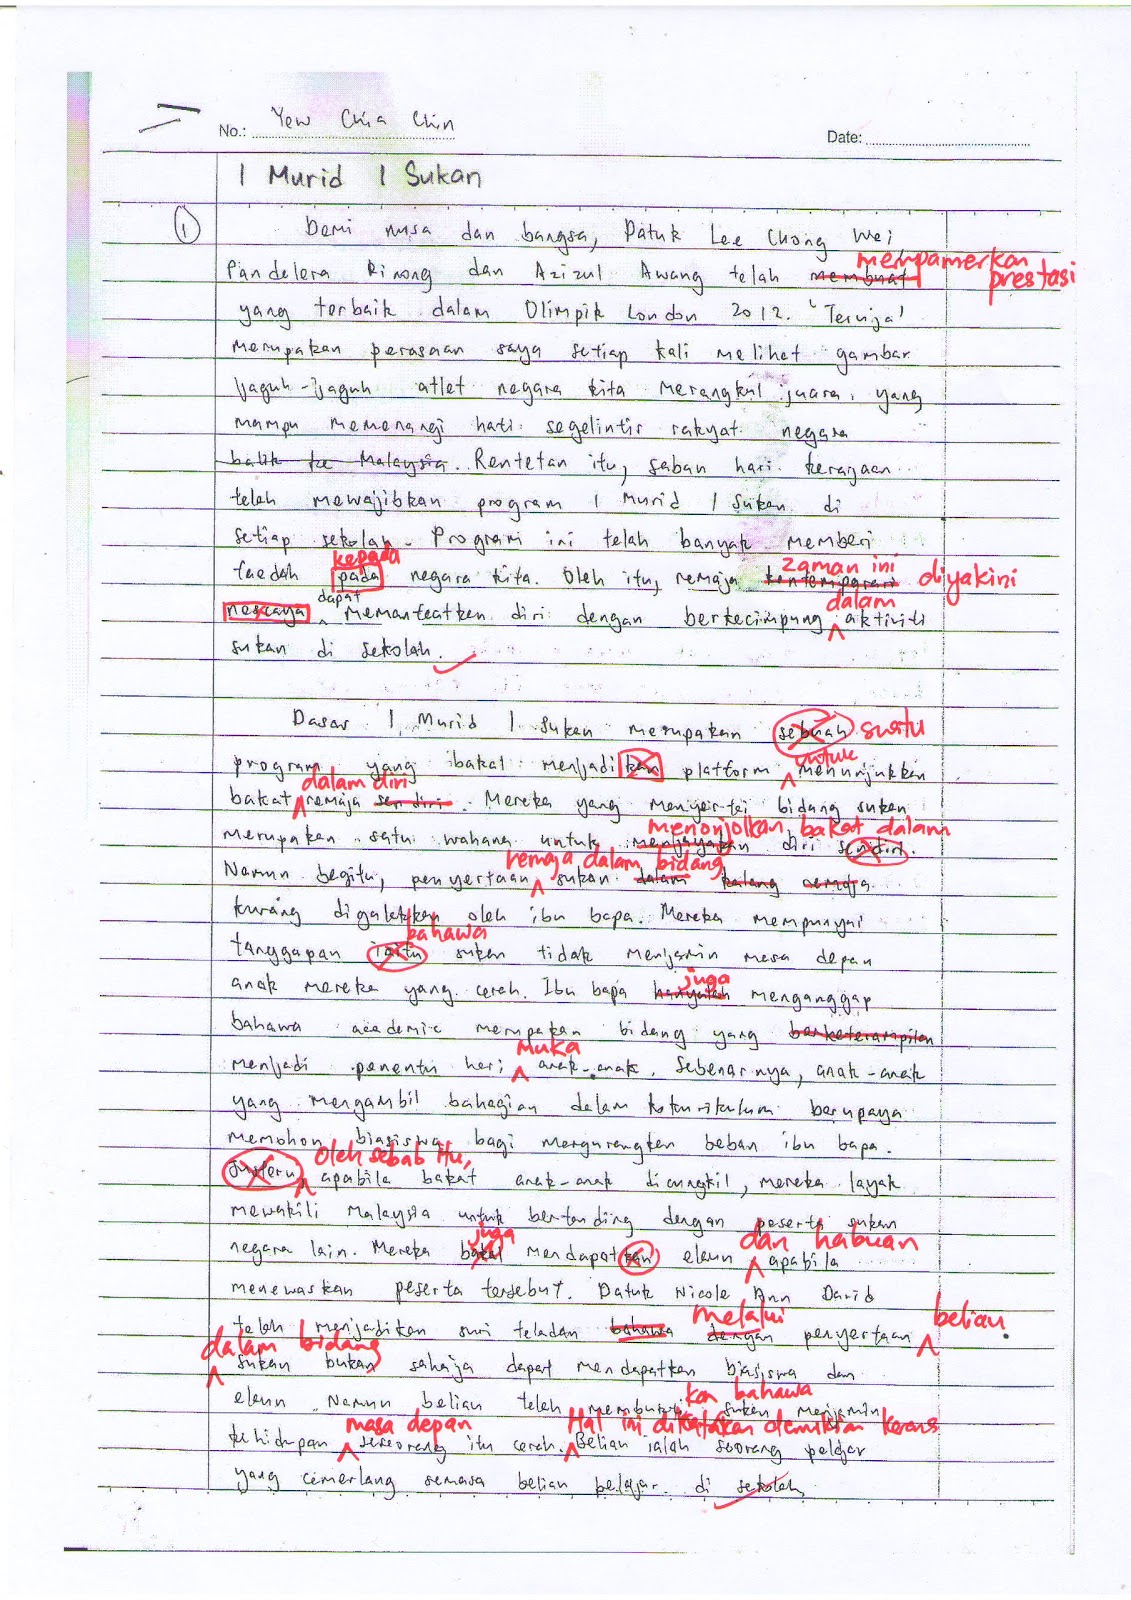 No.: Yew Chia Chin
Date:
1 Murid 1 Sukan
1
Demi nusa dan bangsa, Datuk Lee Chong Wei,
mempamerkan
Pandelera Rinong dan Azizul Awang telah membuat prestasi
yang terbaik dalam Olimpik London 2012. 'Teruja'
merupakan perasaan saya setiap kali melihat gambar
jaguh-jaguh atlet negara kita merangkul juara, yang
mampu memenangi hati segelintir rakyat negara
balik ke Malaysia. Rentetan itu, saban hari kerajaan
telah mewajibkan program 1 Murid 1 Sukan di
setiap sekolah. Program ini telah banyak memberi
kepada zaman ini
faedah pada negara kita. Oleh itu, remaja kontemporari diyakini
dapat dalam
nescaya memanfaatkan diri dengan berkecimpung aktiviti
sukan di sekolah.
Dasar 1 Murid 1 Sukan merupakan sebuah suatu
untuk
program yang bakal menjadikan platform menunjukkan
dalam diri
bakat remaja sendiri. Mereka yang menyertai bidang sukan
menonjolkan bakat dalam
merupakan satu wahana untuk menjayakan diri sendiri.
remaja dalam bidang
Namun begitu, penyertaan sukan dalam kalang remaja
kurang digalakkan oleh ibu bapa. Mereka mempunyai
bahawa
tanggapan iaitu sukan tidak menjamin masa depan
juga
anak mereka yang cerah. Ibu bapa hanyalah menganggap
bahawa academic merupakan bidang yang berketerampilan
muka
menjadi penentu hari anak-anak. Sebenarnya, anak-anak
yang mengambil bahagian dalam kokurikulum berupaya
memohon biasiswa bagi mengurangkan beban ibu bapa.
Oleh sebab itu,
Justeru apabila bakat anak-anak dicungkil, mereka layak
mewakili Malaysia untuk bertanding dengan peserta sukan
juga dan habuan
negara lain. Mereka bakal mendapatkan elaun apabila
menewaskan peserta tersebut. Datuk Nicole Ann David
melalui beliau.
telah menjadikan suri teladan bahawa dengan penyertaan
dalam bidang
sukan bukan sahaja dapat mendapatkan biasiswa dan
kan bahawa
elaun. Namun belian telah membukti sukan menjamin
masa depan Hal ini dikatakan demikian kerana
kehidupan seseorang itu cerah. Belian ialah seorang pelajar
yang cemerlang semasa belian belajar di sekolah.